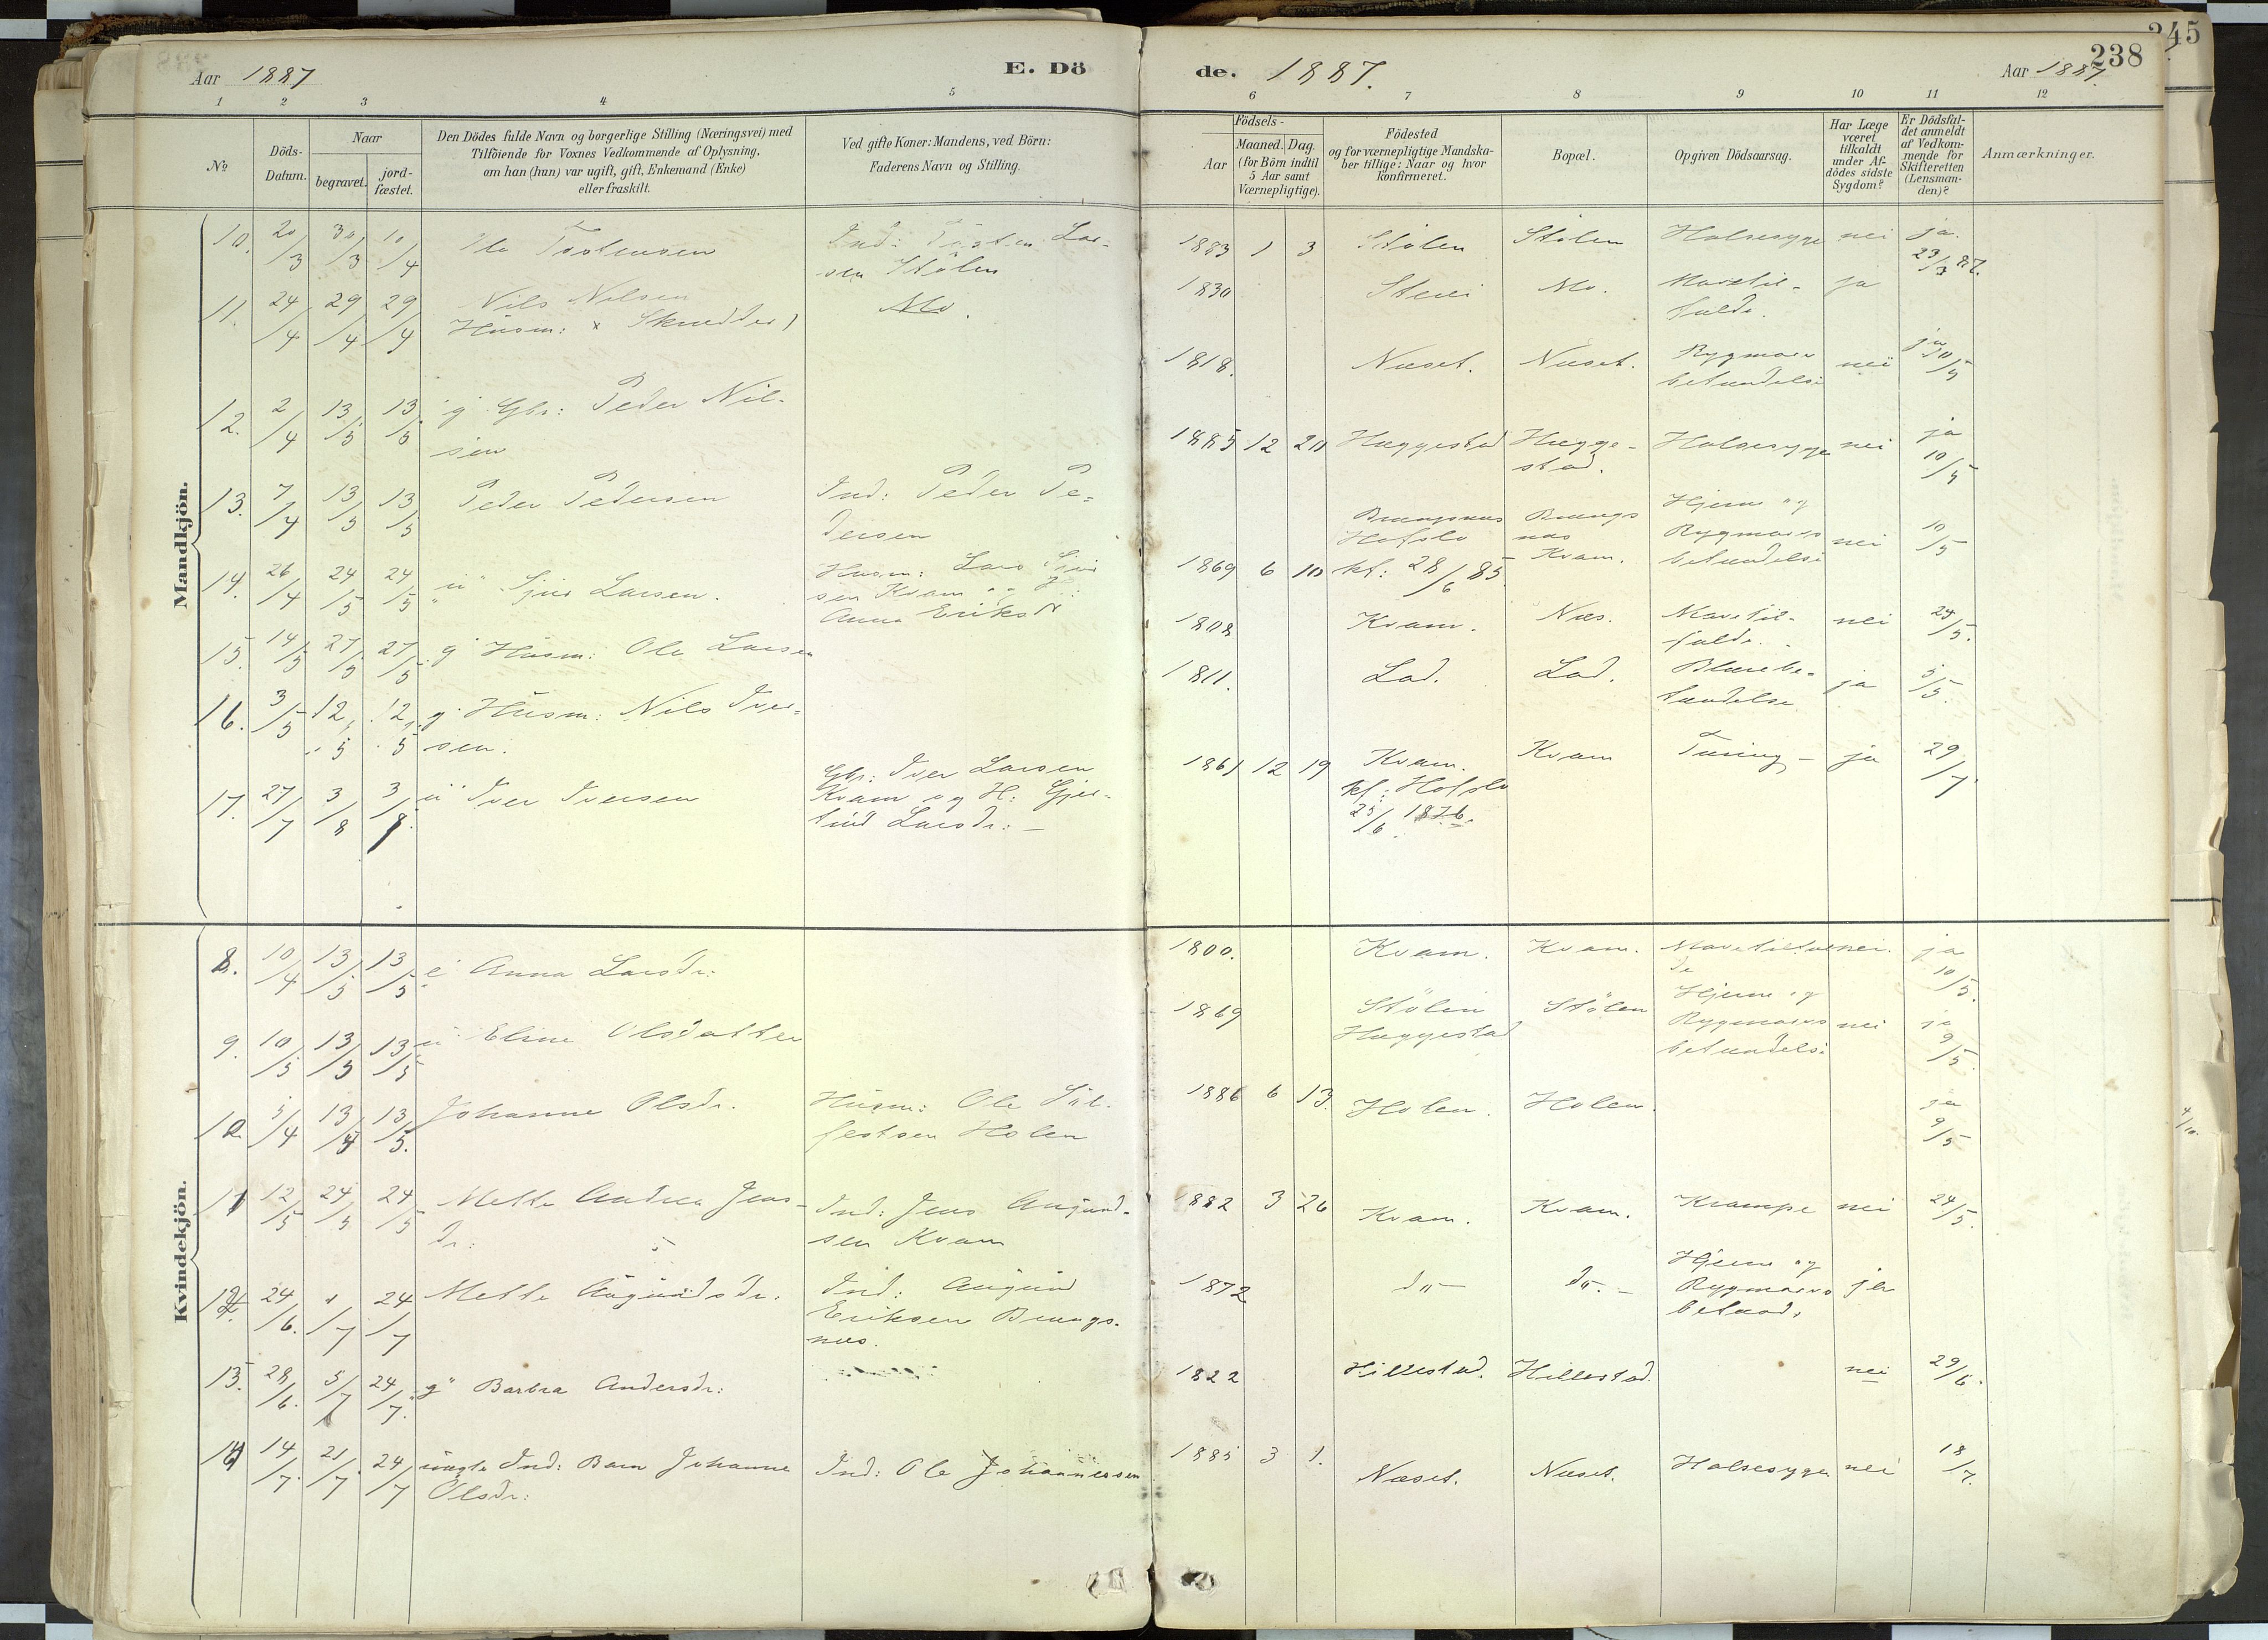 245
238
Aar 1887
E. Dö
de. 1887.
Aar 1887.
1 2 3 4 5 6 7 8 9 10 11 12
No
Döds-
Datum.
Naar
begravet.
jord-
fæstet.
Den Dödes fulde Navn og borgerlige Stilling (Næringsvei) med
Tilföiende for Voxnes Vedkommende af Oplysning,
om han (hun) var ugift, gift, Enkemand (Enke)
eller fraskilt.
Ved gifte Koner: Mandens, ved Börn:
Faderens Navn og Stilling.
Födsels-
Aar
Maaned. Dag.
(for Börn indtil
5 Aar samt
Værnepligtige).
Födested
og for værnepligtige Mandska-
ber tillige: Naar og hvor
konfirmeret.
Bopæl.
Opgiven Dödsaarsag.
Har Læge
været
tilkaldt
under Af-
dödes sidste
Sygdom?
Er Dödsfal-
det anmeldt
af Vedkom-
mende for
Skifteretten
(Lensman-
den)?
Anmærkninger.
Mandkjön.
10. 20/3 30/3 10/4 Tostensen
Ind: Tosten Lar-
sen Stölen
1883 1 3 Stölen Stölen Halssyge nei ja
23/3 87.
11. 24/4 29/4 29/4 Nils Nilsen
Husm: x Skredder)
Mo.
1830 Mo. Mavetil-
fælde. ja
12. 2/4 13/5 13/5 g Gbr: Peder Nil-
sen
1818. Næset. Næset. Rygmarv
betændelse nei ja 10/5
13. 7/4 13/5 13/5 Peder Pedersen
Ind: Peder Pe=
dersen
1885 12 20 Hæggestad Hægge-
stad. Halssyge nei ja
10/5
14. 26/4 24/5 24/5 u Sjur Larsen.
Husm: Lars
sen Kvam og H:
Anna Eriksdr
1869 6 10 Hafslo
kf: 28/6 85. Kvam.
Hjerne og
Rygmarvs
betændelse nei 10/5
15. 14/5 27/5 27/5 g Husm: Ole Larsen
1808 Kvam. Næs. Mavetil-
fælde. nei 24/5.
16. 3/5 12/5 12/5 g Husm: Nils Iver=
sen.
1811. Lad. Lad. Blærebe-
tændelse ja 5/5.
17. 27/7 3/8 3/8. u Iver Iversen
Gbr: Iver Larsen
Kvam og H: Gjer-
trud Larsdr: –
1861 12 19 Kvam.
kf: Hafslo
25/6 1876.
Kvam Tæring – ja 29/7
Kvindekjön.
8. 10/4 13/5 13/5 e Anna Larsdr:
1800. Kvam. Kvam. Mavetilfæl
de nei. ja
10/5.
9. 10/5 13/5 13/5 u Eline Olsdatter
1869 Stölen
Hæggestad
Stölen Hjerne og
Rygmarvs
betændelse nei ja
9/5.
10. 5/4 13/5 13/5. Johanne Olsdr.
Husm: Ole Söl-
festsen Holen
1886 6 13. Holen. Holen. ja
9/5
11 12/5 24/5 24/5 Mette Andrea Jens-
dr:
Ind: Jens Augund-
sen Kvam
1882 3 26 Kvam. Kvam. Krampe nei 24/5.
12. 24/6. "/7 24/7 Mette Augundsdr.
Ind: Augund
Eriksen
næs.
1872 do – do. – Hjerne og
Rygmarvs
betænd. ja
13. 28/6. 5/7 24/7. g Barbra Andersdr:
1822 Hillestad. Hillestad. nei 29/6.
14 14/7. 21/7. 24/7 uægte Ind: Barn Johanne
Olsdr:
Ind: Ole Johannessen
1885 3 1. Næset. Næset. Halssyge nei 18/7.
4/10.